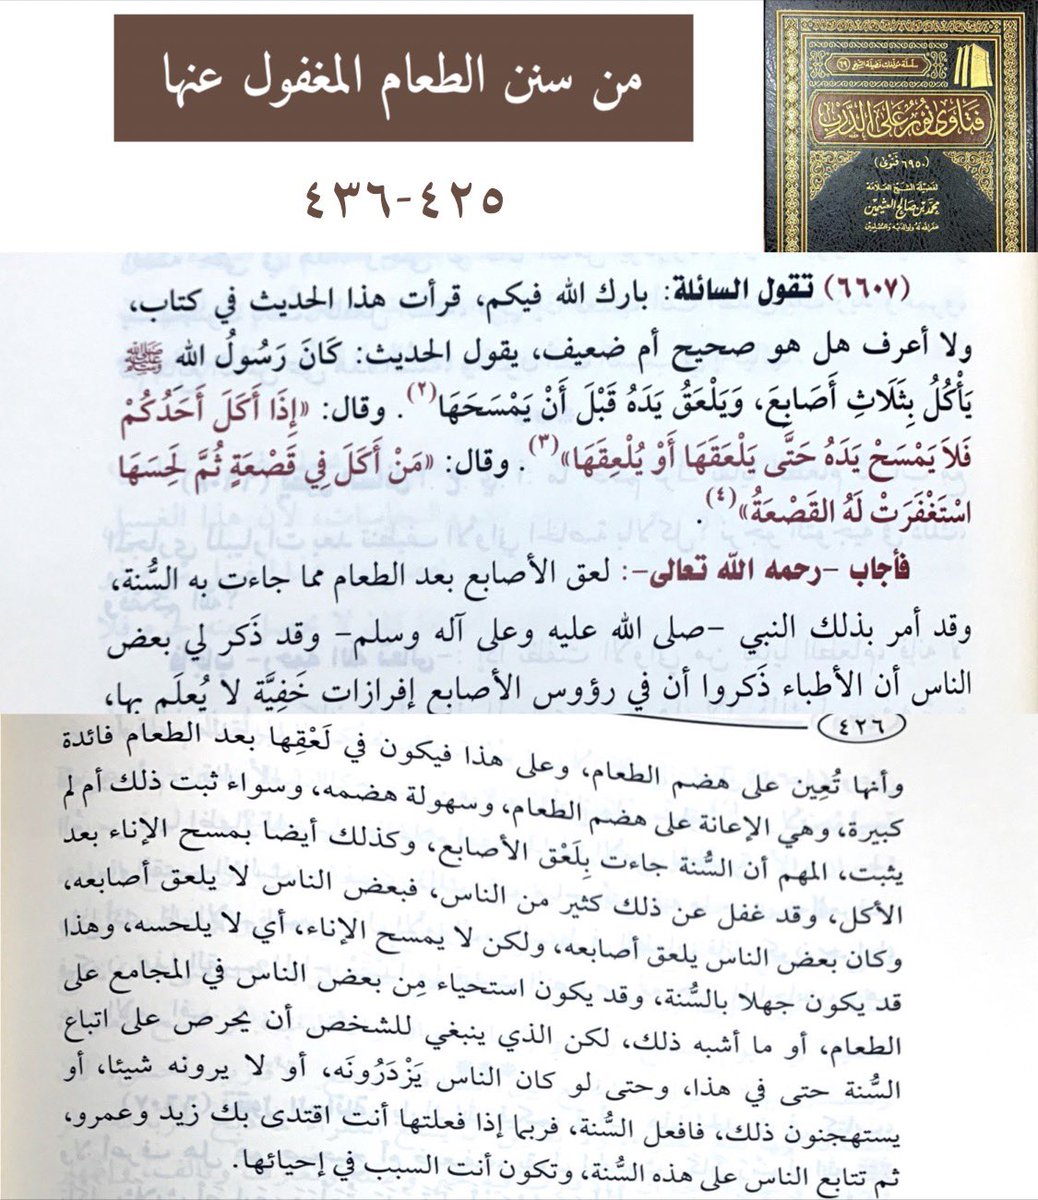 من سنن الطعام المغفول عنها
٤٢٥-٤٣٦
سلسلة مؤلفات فضيلة الشيخ (٦٩)
فتاوى نور على الدرب
(٦٩٥٠ فتوى)
لفضيلة الشيخ العلامة
محمد بن صالح العثيمين
غفر الله له ولوالديه وللمسلمين
(٦٦٠٧) تقول السائلة: بارك الله فيكم، قرأت هذا الحديث في كتاب،
ولا أعرف هل هو صحيح أم ضعيف، يقول الحديث: كَانَ رَسُولُ الله ﷺ
يَأْكُلُ بِثَلَاثِ أَصَابِعَ، وَيَلْعَقُ يَدَهُ قَبْلَ أَنْ يَمْسَحَهَا(٢). وقال: «إِذَا أَكَلَ أَحَدُكُمْ
فَلَا يَمْسَحْ يَدَهُ حَتَّى يَلْعَقَهَا أَوْ يُلْعِقَهَا»(٣). وقال: «مَنْ أَكَلَ فِي قَصْعَةٍ ثُمَّ لَحِسَهَا
اسْتَغْفَرَتْ لَهُ القَصْعَةُ»(٤).
فأجاب -رحمه الله تعالى-: لعق الأصابع بعد الطعام مما جاءت به السُّنة،
وقد أمر بذلك النبي -صلى الله عليه وعلى آله وسلم- وقد ذَكر لي بعض
الناس أن الأطباء ذَكروا أن في رؤوس الأصابع إفرازات خَفِيَّة لا يُعلَم بها،
٤٢٦
وأنها تُعِين على هضم الطعام، وعلى هذا فيكون في لَعْقِها بعد الطعام فائدة
كبيرة، وهي الإعانة على هضم الطعام، وسهولة هضمه، وسواء ثبت ذلك أم لم
يثبت، المهم أن السُّنة جاءت بِلَعْق الأصابع، وكذلك أيضا بمسح الإناء بعد
الأكل، وقد غفل عن ذلك كثير من الناس، فبعض الناس لا يلعق أصابعه،
وكان بعض الناس يلعق أصابعه، ولكن لا يمسح الإناء، أي لا يلحسه، وهذا
قد يكون جهلا بالسُّنة، وقد يكون استحياء مِن بعض الناس في المجامع على
الطعام، أو ما أشبه ذلك، لكن الذي ينبغي للشخص أن يحرص على اتباع
السُّنة حتى في هذا، وحتى لو كان الناس يَزْدَرُونَه، أو لا يرونه شيئا، أو
يستهجنون ذلك، فافعل السُّنة، فربما إذا فعلتها أنت اقتدى بك زيد وعمرو،
ثم تتابع الناس على هذه السُّنة، وتكون أنت السبب في إحيائها.